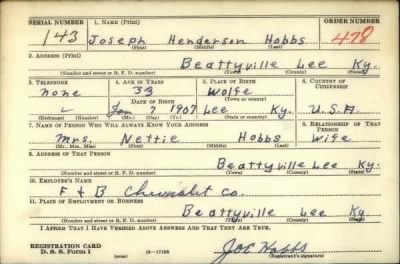 SERIAL NUMBER 1. NAME (Print) ORDER NUMBER
143 Joseph Henderson Hobbs 478
(First) (Middle) (Last)
2. ADDRESS (Print)
Beattyville Lee Ky.
(Number and street or R. F. D. number) (Town) (County) (State)
3. TELEPHONE 4. AGE IN YEARS 5. PLACE OF BIRTH 6. COUNTRY OF CITIZENSHIP
none 33 Wolfe
DATE OF BIRTH (Town or county)
Jan 7 1907 Lee Ky. U.S.A.
(Exchange) (Number) (Mo.) (Day) (Yr.) (State or country)
7. NAME OF PERSON WHO WILL ALWAYS KNOW YOUR ADDRESS 8. RELATIONSHIP OF THAT PERSON
Mrs. Nettie Hobbs Wife
(Mr., Mrs., Miss) (First) (Middle) (Last)
9. ADDRESS OF THAT PERSON
Beattyville Lee Ky.
(Number and street or R. F. D. number) (Town) (County) (State)
10. EMPLOYER'S NAME
F & B Chevrolet Co.
11. PLACE OF EMPLOYMENT OR BUSINESS
Beattyville Lee Ky.
(Number and street or R. F. D. number) (Town) (County) (State)
I AFFIRM THAT I HAVE VERIFIED ABOVE ANSWERS AND THAT THEY ARE TRUE.
REGISTRATION CARD
D. S. S. Form 1 (over) Joe Hobbs
(Registrant's signature)